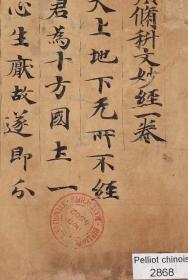 脩科文妙經一卷
天上地下无所不經
君為十方國主一
心生厭故遂即分
Pelliot chinois
2868